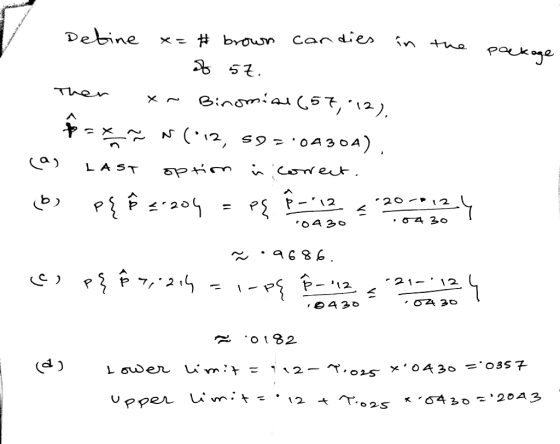 Define x = # brown candies in the package
of 57.
Then x ~ Binomial (57, .12).
p̂ = x/n ≈ N (.12, SD = .04304).
(a) LAST option is correct.
(b) P{ p̂ ≤ .20} = P{ (p̂ - .12)/.0430 ≤ (.20 - .12)/.0430 }
≈ .9686.
(c) P{ p̂ ≥ .21} = 1 - P{ (p̂ - .12)/.0430 ≤ (.21 - .12)/.0430 }
≈ .0182
(d) Lower limit = .12 - τ.025 × .0430 = .0357
Upper limit = .12 + τ.025 × .0430 = .2043